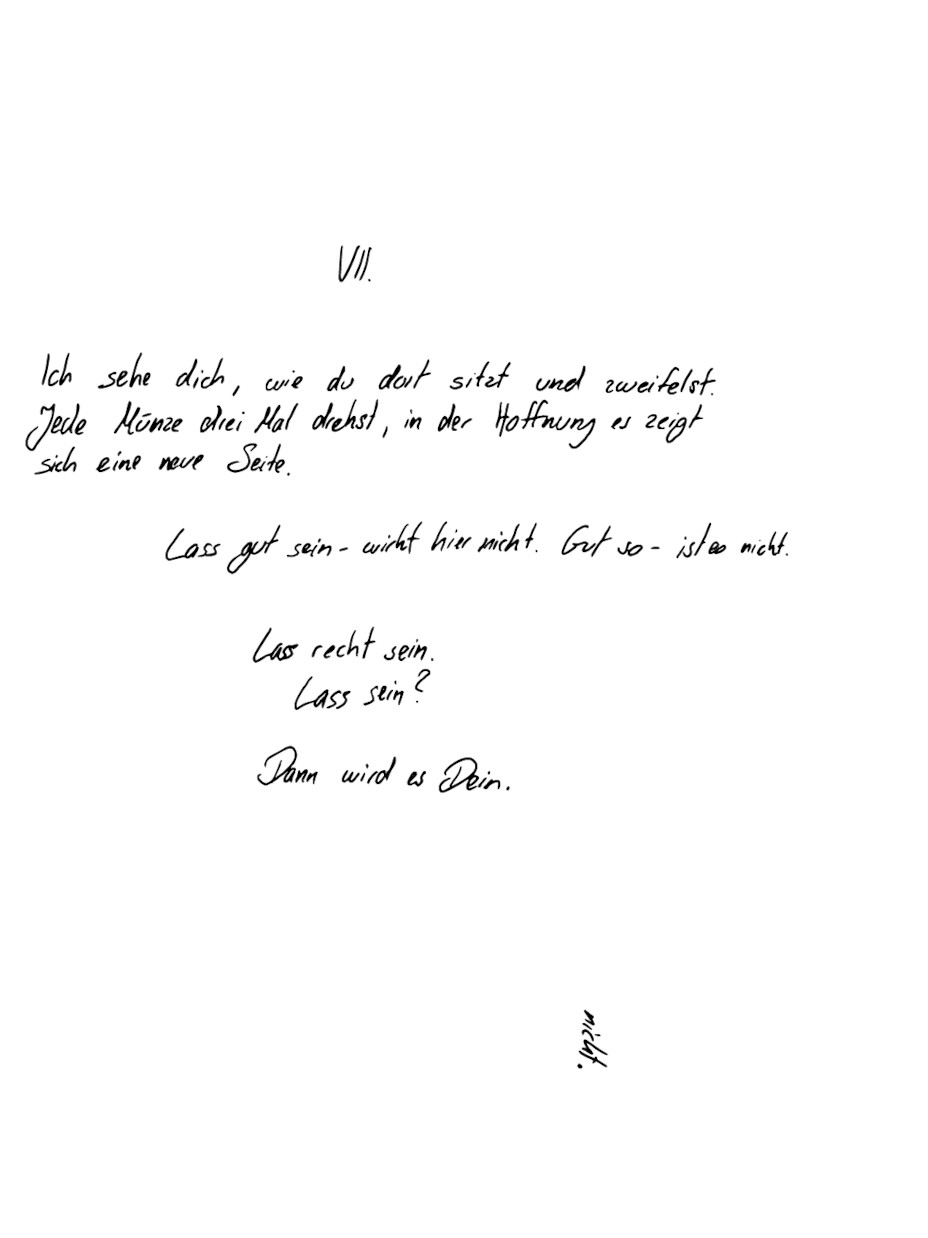 VII.
Ich sehe dich, wie du dort sitzt und zweifelst.
Jede Münze drei Mal drehst, in der Hoffnung es zeigt
sich eine neue Seite.
Lass gut sein - wirkt hier nicht. Gut so - ist es nicht.
Lass recht sein.
Lass sein?
Dann wird es Dein.
nicht.